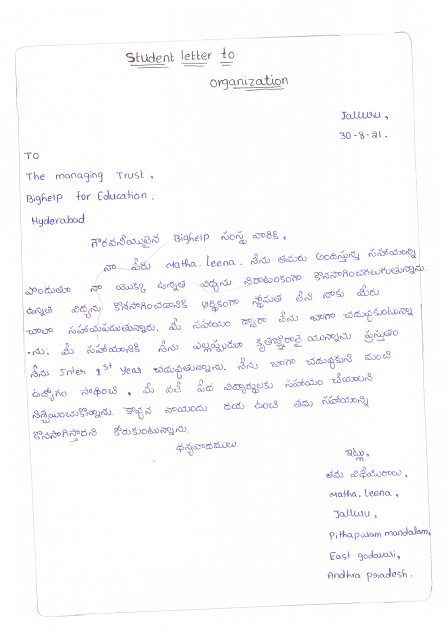 Student letter to
organization
Jalluru,
30-8-21.
To
The managing Trust,
Bighelp for Education.
Hyderabad.
గౌరవనీయులైన Bighelp సంస్థ వారికి,
నా పేరు Matha.Leena. నేను తమరు అందిస్తున్న సహాయాన్ని
పొందుతూ నా యొక్క ఉన్నత విద్యను నిరాటంకంగా కొనసాగించగలుగుతున్నాను.
ఉన్నత విద్యను కొనసాగించడానికి ఆర్థికంగా స్థోమత లేని నాకు మీరు
చాలా సహాయపడుతున్నారు. మీ సహాయం ద్వారా నేను బాగా చదువ్వకుంటున్నా
-ను. మీ సహాయానికి నేను ఎల్లప్పుడూ కృతజ్ఞురాలై యున్నాను ప్రస్తుతం
నేను Inter 1st Year చదువ్వుతున్నాను. నేను బాగా చదువ్వకుని మంచి
ఉద్యోగం సాధించి, మీ వలె పేద విద్యార్థులకు సహాయం చేయాలని
నిశ్చయించుకొన్నాను. కావ్వన నాయందు దయ ఉంచి తమ సహాయాన్ని
కొనసాగిస్తారని కోరుకుంటున్నాను.
ధన్యవాదములు.
ఇట్లు,
తమ విధేయురాలు,
Matha.Leena,
Jalluru,
Pithapuram mandalam,
East godavari,
Andhra pradesh.